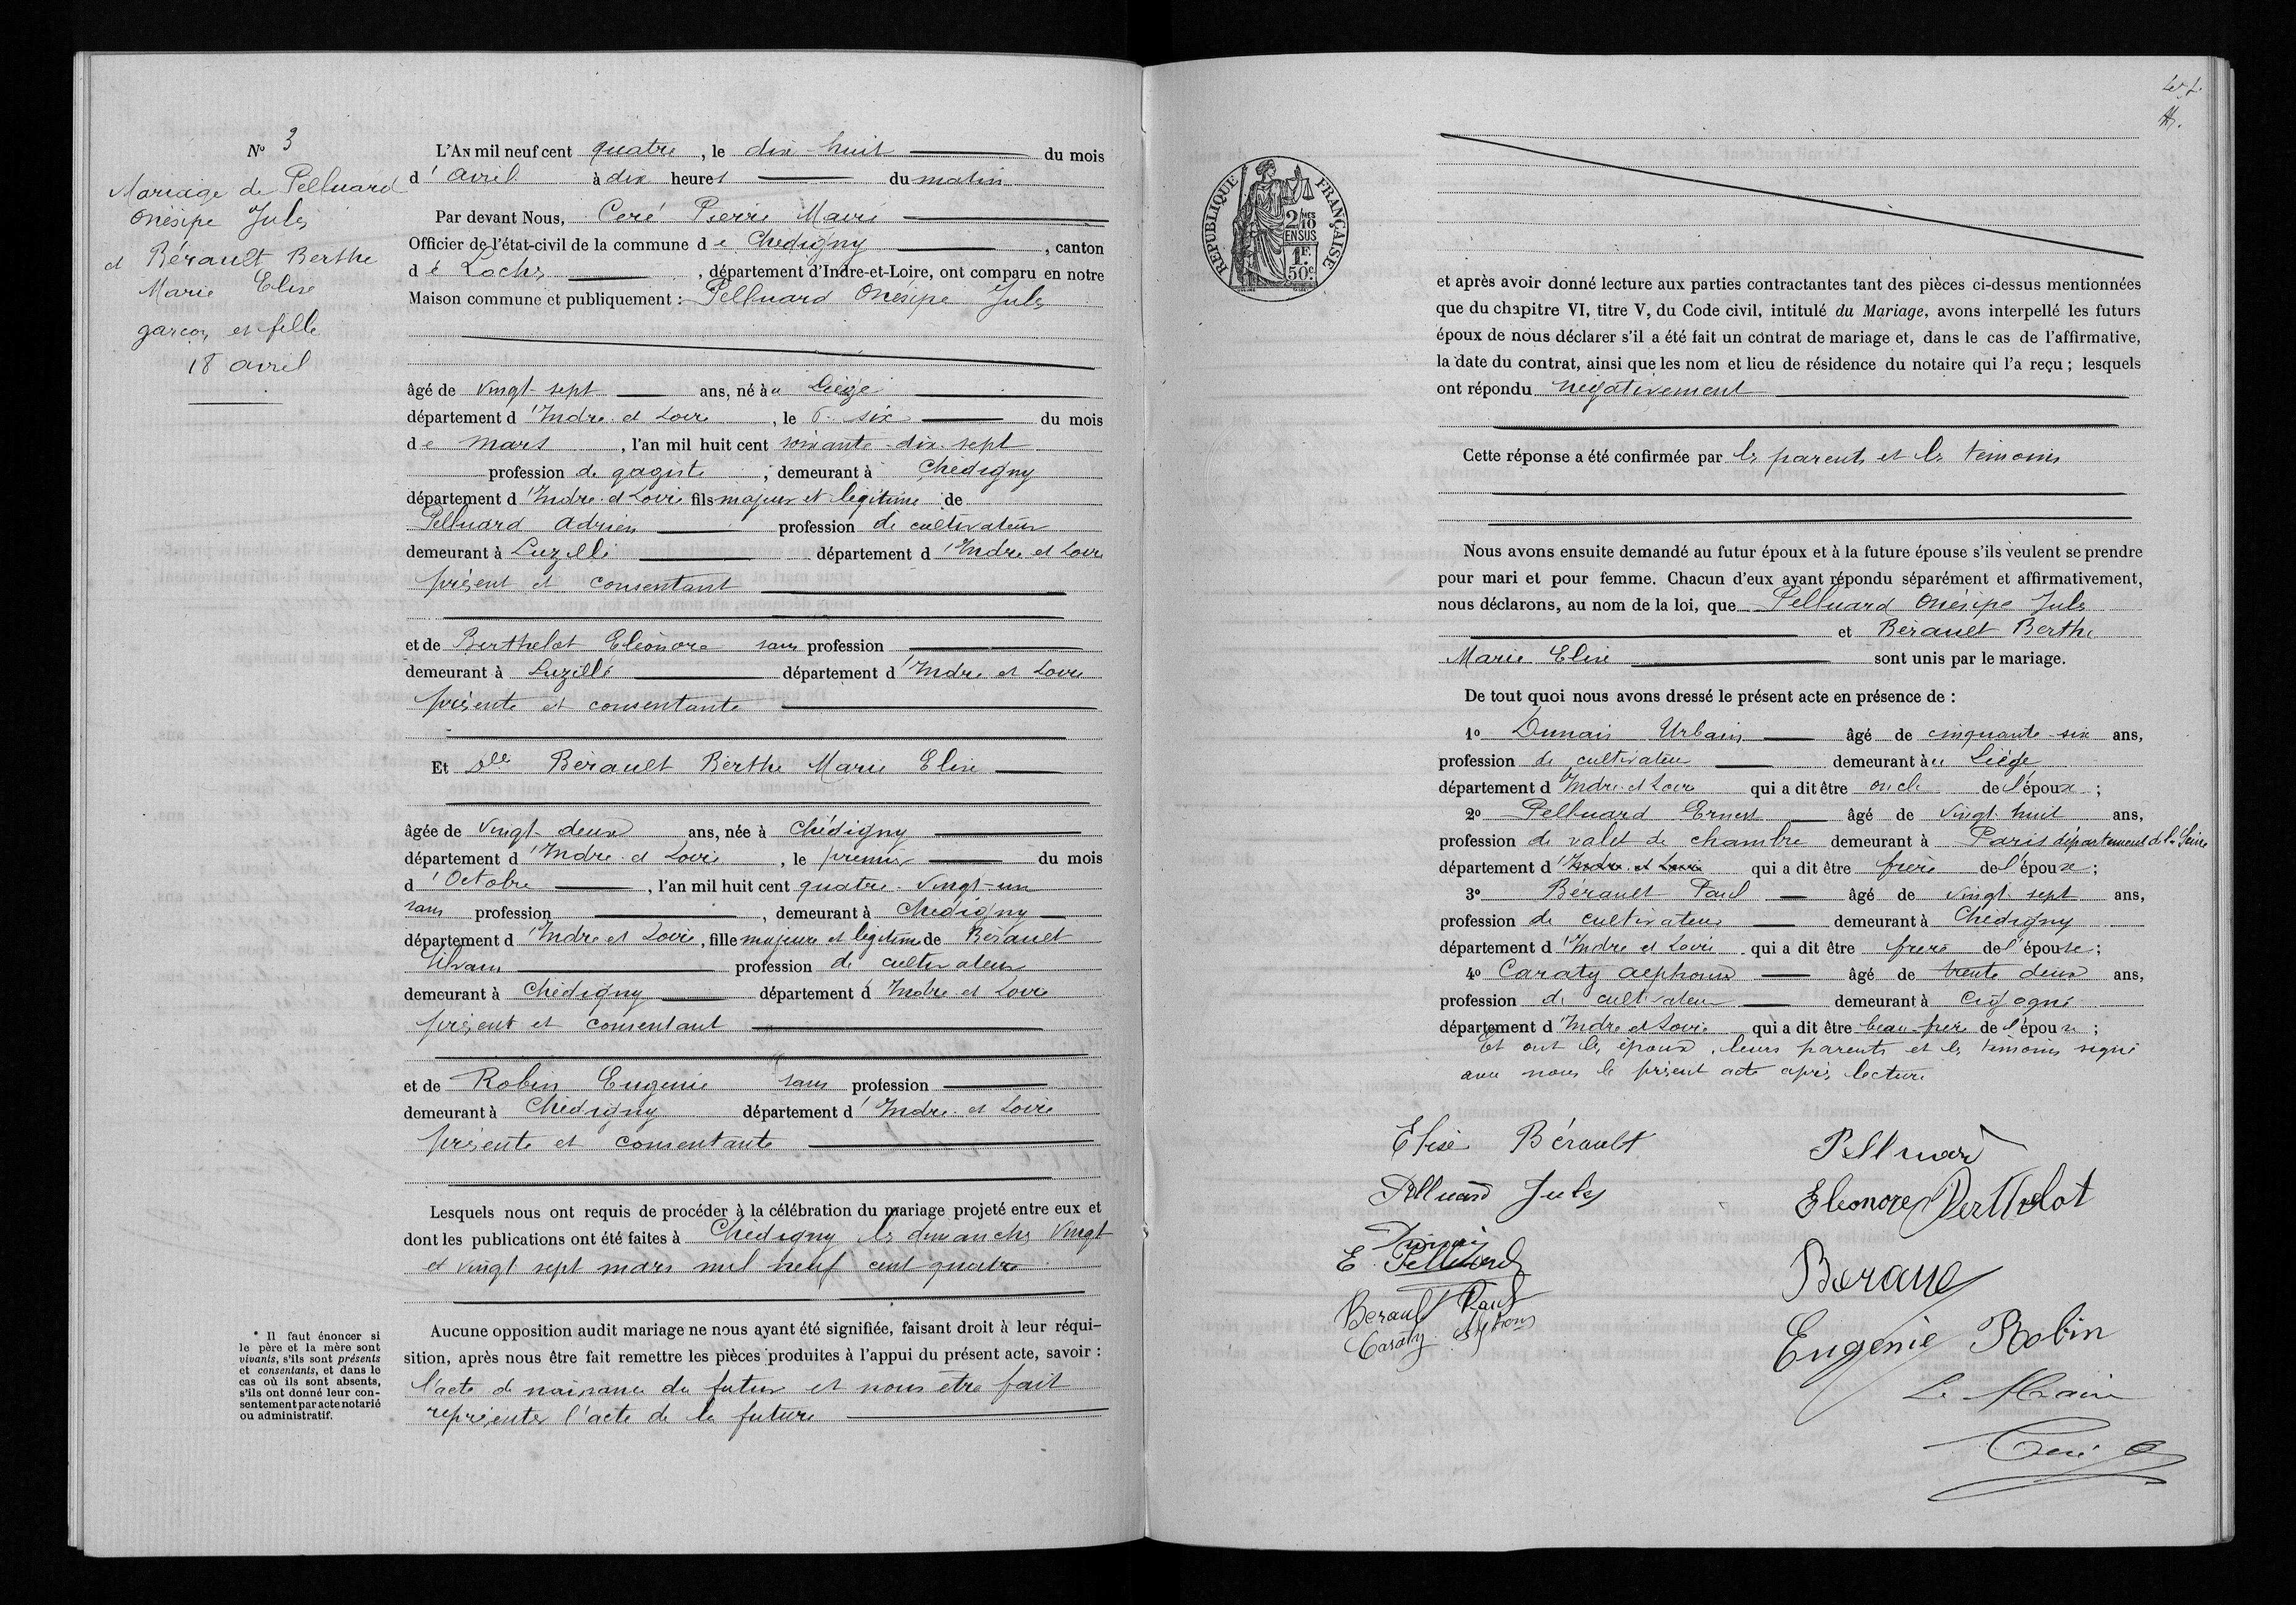 Nº 3
Mariage de Pelluard
Onésipe Jules
et Bérault Berthe
Marie Elise
garçon et fille
18 avril
L'AN mil neuf cent quatre, le dix-huit du mois
d'avril à dix heures du matin
Par devant Nous, Ceré Pierre
Officier de l'état-civil de la commune de Chédigny, canton
de Loches, département d'Indre-et-Loire, ont comparu en notre
Maison commune et publiquement : Pelluard Onésipe Jules
âgé de vingt-sept ans, né au Liège
département d'Indre et Loire, le six du mois
de mars, l'an mil huit cent soixante-dix-sept
profession de gagiste, demeurant à Chédigny
département d'Indre et Loire fils majeur et légitime de
Pelluard Adrien profession de cultivateur
demeurant à Luzillé département d'Indre et Loire
présent et consentant
et de Berthelot Eléonore sans profession
demeurant à Luzillé département d'Indre et Loire
présente et consentante
Et Dlle Bérault Berthe Marie Elise
âgée de vingt-deux ans, née à Chédigny
département d'Indre et Loire, le premier du mois
d'Octobre, l'an mil huit cent quatre-vingt-un
sans profession, demeurant à Chédigny
département d'Indre et Loire, fille majeure et légitime de Bérault
Silvain profession de cultivateur
demeurant à Chédigny département d'Indre et Loire
présent et consentant
et de Robin Eugénie sans profession
demeurant à Chédigny département d'Indre et Loire
présente et consentante
Lesquels nous ont requis de procéder à la célébration du mariage projeté entre eux et
dont les publications ont été faites à Chédigny les dimanches vingt
et vingt sept mars mil neuf cent quatre
Aucune opposition audit mariage ne nous ayant été signifiée, faisant droit à leur réqui-
sition, après nous être fait remettre les pièces produites à l'appui du présent acte, savoir :
l'acte de naissance du futur et nous être fait
représenter l'acte de la future
* Il faut énoncer si
le père et la mère sont
vivants, s'ils sont présents
et consentants, et dans le
cas où ils sont absents,
s'ils ont donné leur con-
sentement par acte notarié
ou administratif.
RÉPUBLIQUE FRANÇAISE
2/10
EN SUS
1F.
50c
et après avoir donné lecture aux parties contractantes tant des pièces ci-dessus mentionnées
que du chapitre VI, titre V, du Code civil, intitulé du Mariage, avons interpellé les futurs
époux de nous déclarer s'il a été fait un contrat de mariage et, dans le cas de l'affirmative,
la date du contrat, ainsi que les nom et lieu de résidence du notaire qui l'a reçu ; lesquels
ont répondu négativement
Cette réponse a été confirmée par les parents et les témoins
Nous avons ensuite demandé au futur époux et à la future épouse s'ils veulent se prendre
pour mari et pour femme. Chacun d'eux ayant répondu séparément et affirmativement,
nous déclarons, au nom de la loi, que Pelluard Onésipe Jules
et Bérault Berthe
Marie Elise sont unis par le mariage.
De tout quoi nous avons dressé le présent acte en présence de :
1º Dunais Urbain âgé de cinquante-six ans,
profession de cultivateur demeurant au Liège
département d'Indre et Loire qui a dit être oncle de l'époux ;
2º Pelluard Ernest âgé de vingt-huit ans,
profession de valet de chambre demeurant à Paris département de la Seine
département d'Indre et Loire qui a dit être frère de l'époux ;
3º Bérault Paul âgé de vingt sept ans,
profession de cultivateur demeurant à Chédigny
département d'Indre et Loire qui a dit être frère de l'épouse ;
4º Caraty Alphonse âgé de trente deux ans,
profession de cultivateur demeurant à Cigogné
département d'Indre et Loire qui a dit être beau-frère de l'époux ;
Et ont les époux, leurs parents et les témoins signé
avec nous le présent acte après lecture
Elise Bérault
Pelluard
Pelluard Jules
Eleonore Berthelot
Dunais
E. Pelluard
Beraul
Berault Paul
Caraty
Eugénie Robin
Le Maire
Ceré